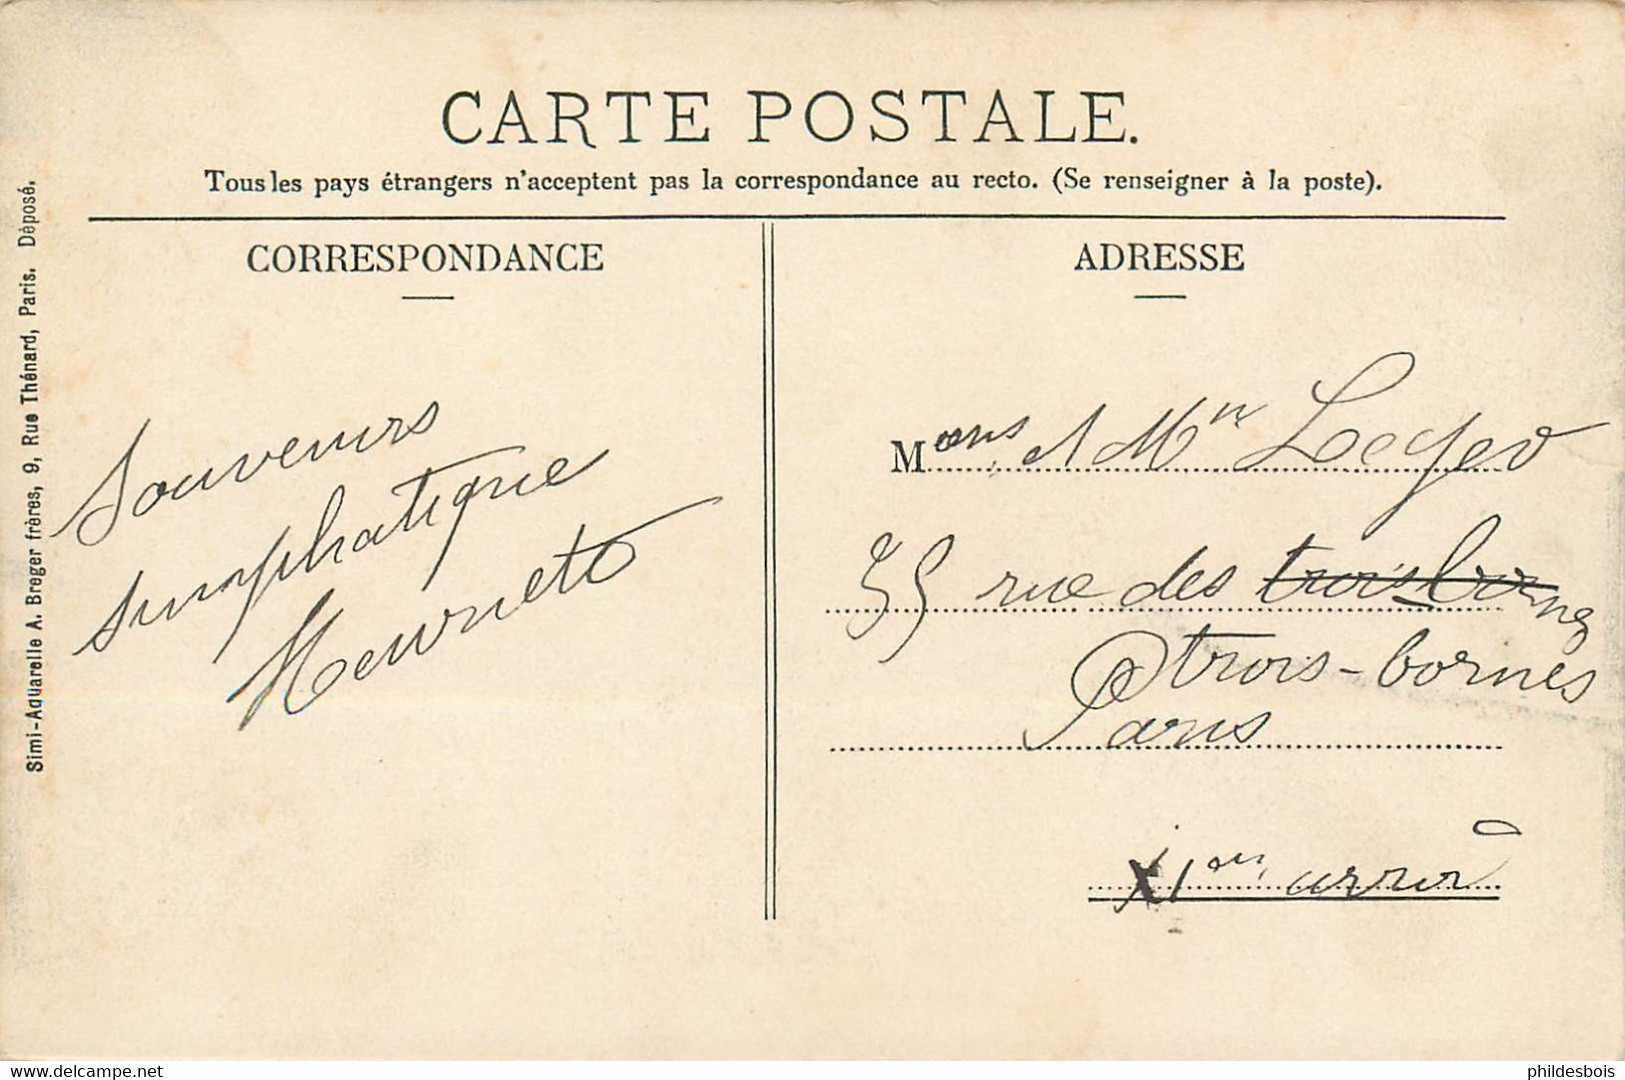 CARTE POSTALE.
Tous les pays étrangers n'acceptent pas la correspondance au recto. (Se renseigner à la poste).
CORRESPONDANCE
Souvenirs
simphatique
ADRESSE
Mons et Mme Leger
35 rue des trois bornes
trois-bornes
Paris
XIem arron
Simi-Aquarelle A. Breger frères, 9, Rue Thénard, Paris. Déposé.
https://www.delcampe.net
phildesbois